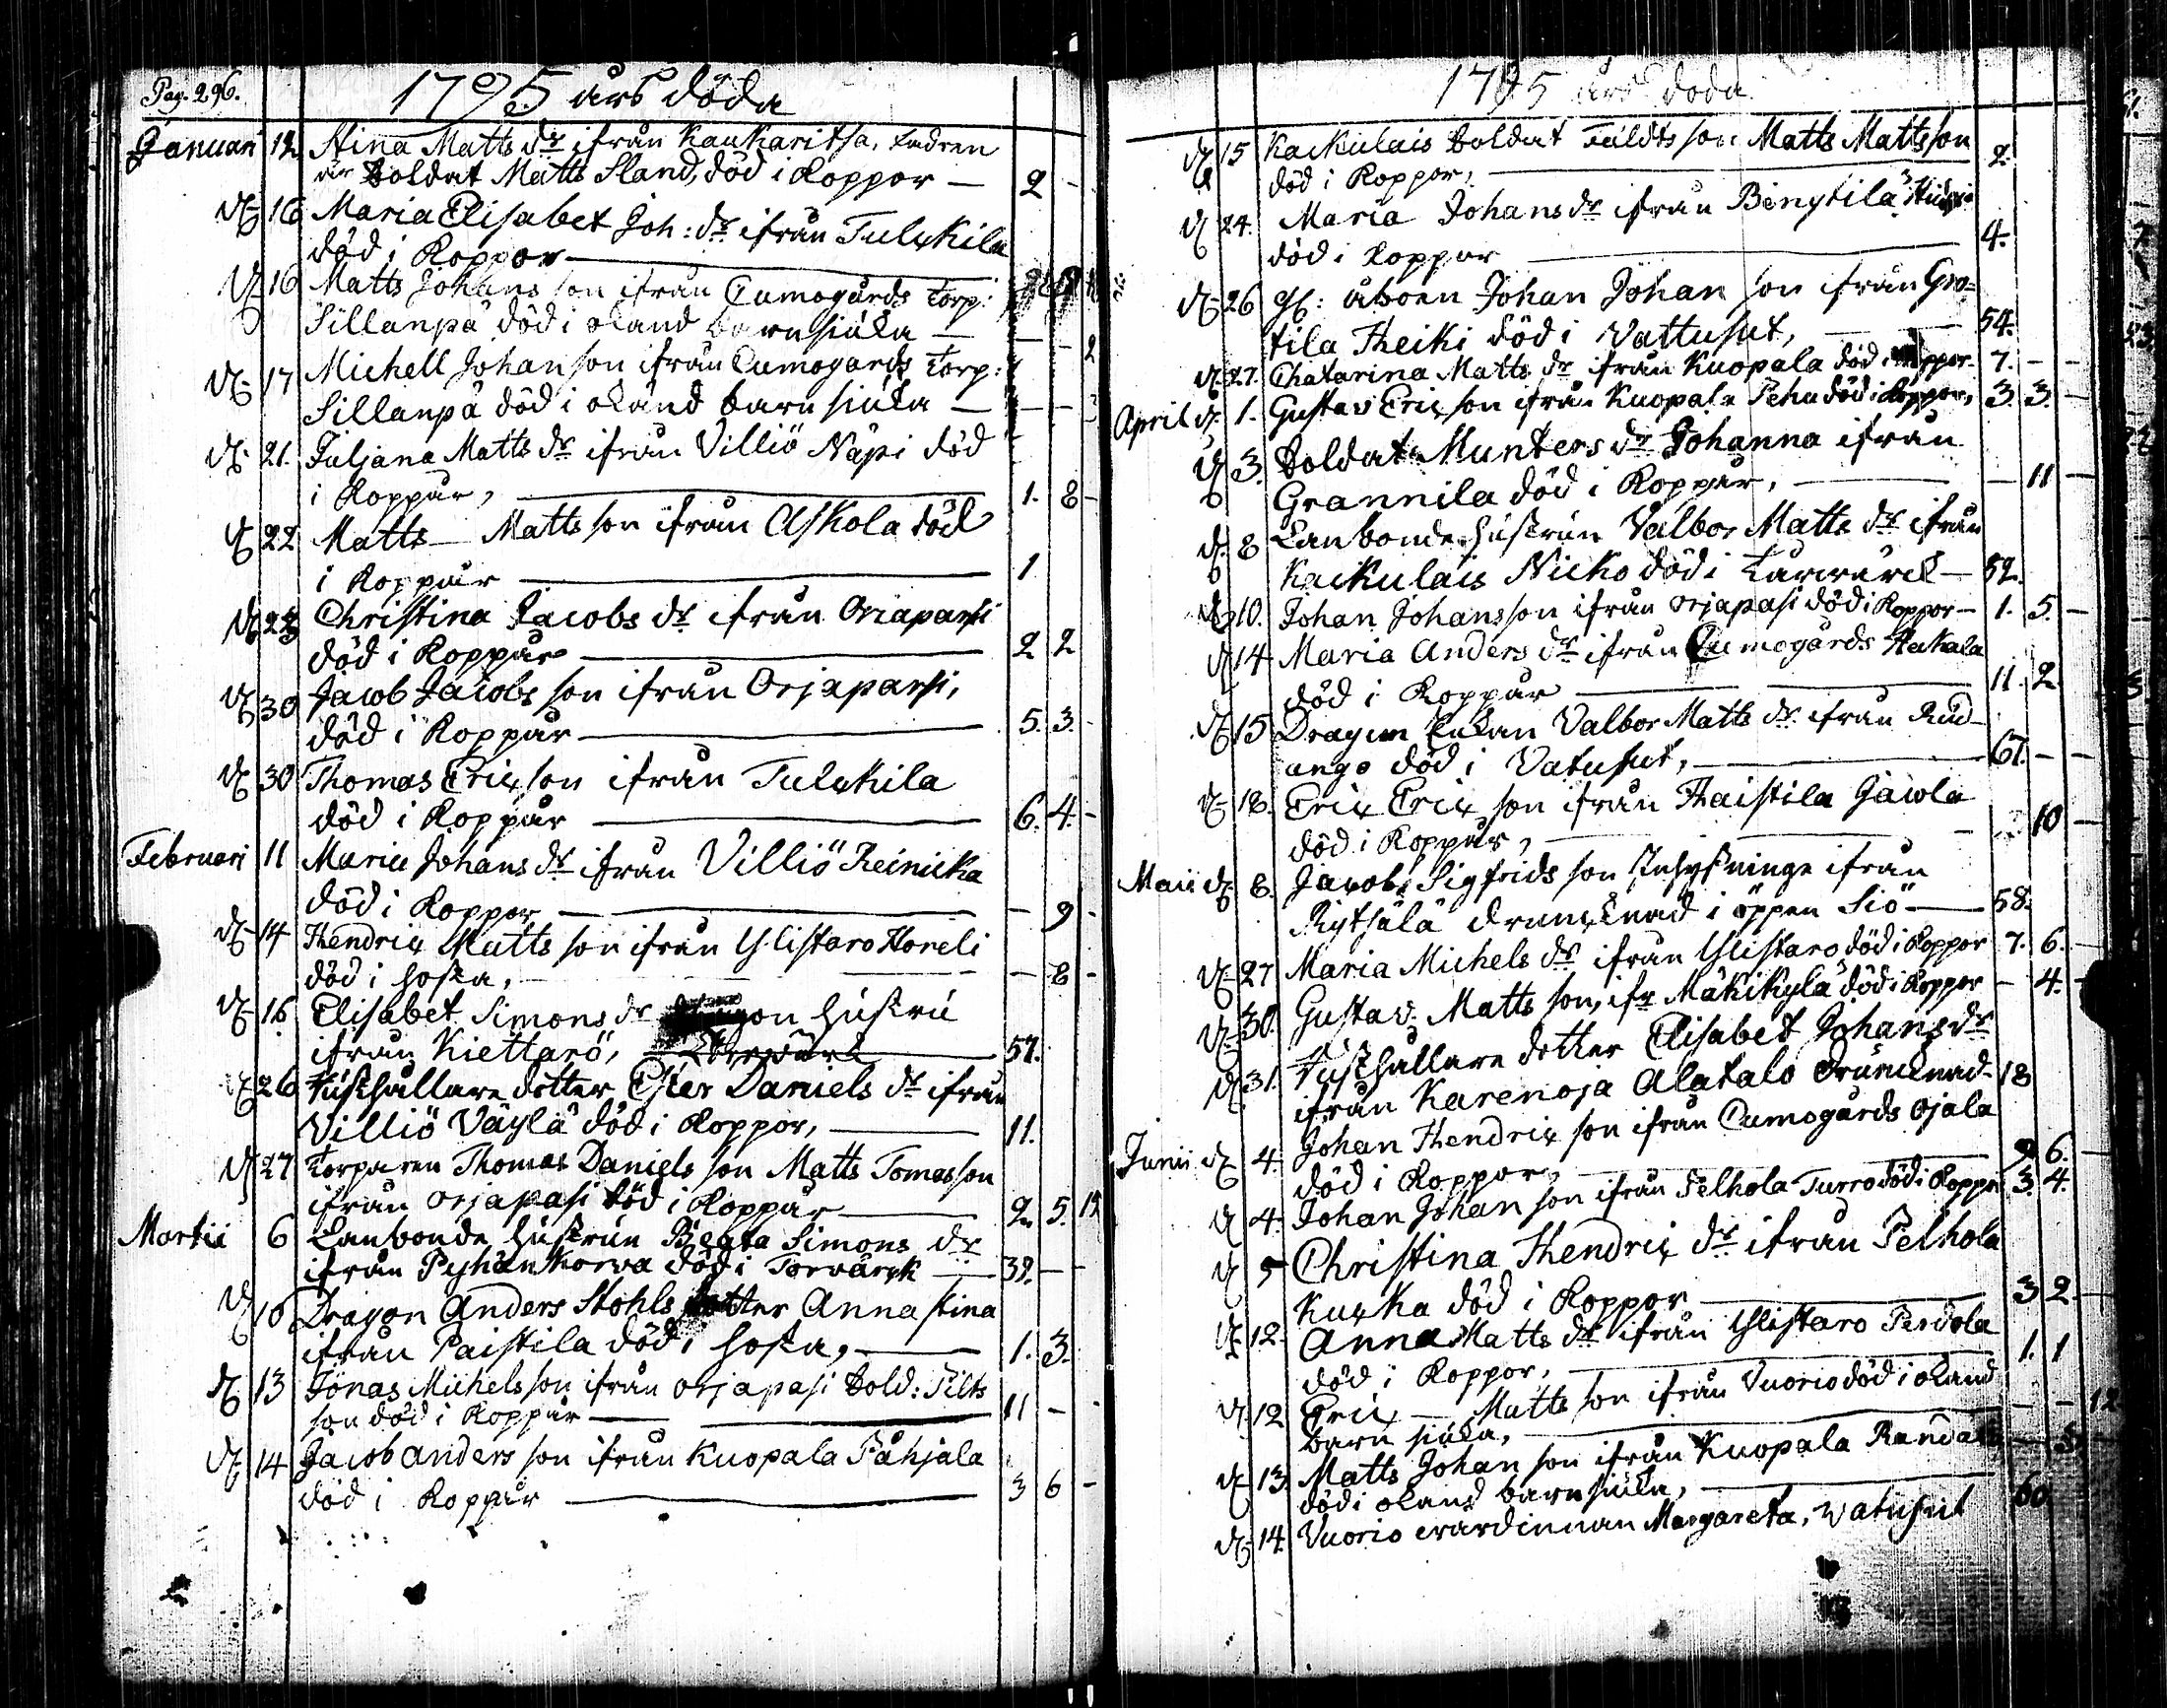 Pag. 296.
1795 års döda
Januari 12 Stina Matts dr ifrån Kaukaritsa, Fadren
är Soldat Matts Sland, död i Koppor — 2 -
d 16 Maria Elisabet Joh: dr ifrån Tulkkila
död i Koppor
d 16 Matts Johans son ifrån Cumogårds Torp:
Sillanpä död i okänd barnsiuka —
d. 17 Michell Johan son ifrån Cumogards Torp: - - 2
Sillanpä död i okänd barn siuka —
d. 21. Juljana Matts dr ifrån Villiö Näpi död
i Koppår, 1. 8 -
d 22 Matts — Matts son ifrån Askola död
i Koppår 1
d 28 Christina Jacobs dr ifrån Oriapaesi
död i Koppår 2 2
d 30 Jacob Jacobs son ifrån Orjapaesi,
död i Koppår 5. 3.
d 30 Thomas Ericx son ifrån Tulkkila
död i Koppår 6. 4. -
Februari 11 Maria Johans dr ifrån Villiö Reinicka
död i Koppor — 9 -
d 14 Hendrix Matts son ifrån Ylistaro Horeli
död i hosta, — 8 -
d 16 Elisabet Simons dr hustru
ifrån Kiettarö, 57.
d 26 Rusthållare dotter Ester Daniels dr ifrån
Villiö Väylä död i Koppor, 11.
d 27 Torparen Thomas Daniels son Matts Tomas son
ifrån Orjapasi död i Koppår 2. 5. 12
Martii 6 Lanbonde hustrun Beata Simons dr
ifrån Pyhän Korva död i Torvärck — 39. - -
d 10 Dragon Anders Stohls dotter Anna Stina
ifrån Paistila död i hosta, 1. 3.
d 13 Jonas Michels son ifrån Orjapasi Sold: Filts
son död i Koppår 11 -
d 14 Jacob Anders son ifrån Kuopala Påhjala
död i Koppår 3 6 -
1795 års döda
d 15 Kackulais Soldat Fäldts son Matts Mattsson
död i Koppor, 2.
d 24. Maria Johans dr ifrån Benytilä
död i Koppor 4.
d 26 gl: åboen Johan Johan son ifrån Gro=
tila Heiki död i Vattusot, 54.
d 27. Chatarina Matts dr ifrån Kuopala död i Koppor 7. - -
April d. 1. Gustav Ericx son ifrån Kuopala Pehu död i Koppor, 3. 3. -
d 3. Soldat Munters dr Johanna ifrån
Grannila död i Koppår, — 11 -
d. 8 Lanbonde hustrun Valbor Matts dr ifrån
Kackulais Nicko död i Tarwärck — 52.
d 10. Johan Johansson ifrån Orjapasi död i Koppor — 1. 5. -
d 14 Maria Anders dr ifrån Cumogårds Hakala
död i Koppår 11. 2
d 15 Dragun Enkan Valbor Matts dr ifrån Rud-
ango död i Vatusot, 67. - -
d 18. Ericx Ericx son ifrån Haistila Jacola
död i Koppår, 10 -
Maii d 8. Jacob Sigfrids son Inhysninge ifrån
Rytsälä drunkknad i öppen Siö — 58.
d 27 Maria Michels dr ifrån Ylistaro död i Koppor 7. 6. -
d 30. Gustav. Matts son, ifr Mäkikylä död i Koppor - 4. -
d 31. Rusthållare dotter Elisabet Johans dr
ifrån Karenoja Alatalo drunknad 18
Junii d 4. Johan Hendrix son ifrån Cumogårds Ojala
död i Koppor, 9 6.
d 4. Johan Johan son ifrån Pelhola Turro död i Koppor 3. 4.
d 5 Christina Hendrix dr ifrån Pelhola
Kuxka död i Koppor 3 2.
d 12. Anna Matts dr ifrån Ylistaro Perdola
död i Koppor, 1. 1
d. 12 Ericx — Matts son ifrån Vuorio död i okänd
barn siuka, - - 12
d 13 Matts Johan son ifrån Kuopala Randala
död i okänd barn siuka,
d 14. Vuorio werdinnan Margareta, Watusot 60